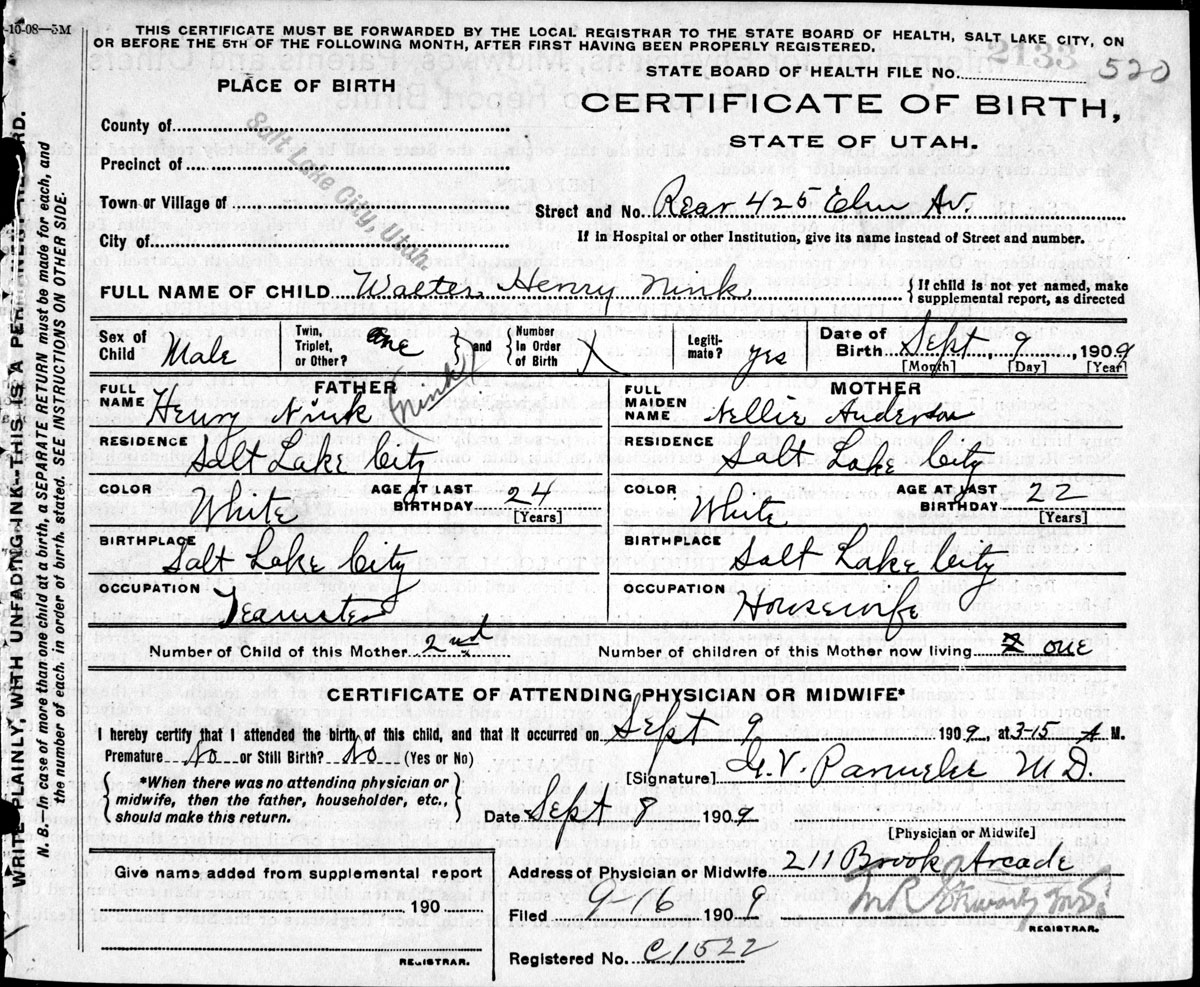 -10-08—5M
THIS CERTIFICATE MUST BE FORWARDED BY THE LOCAL REGISTRAR TO THE STATE BOARD OF HEALTH, SALT LAKE CITY, ON
OR BEFORE THE 5TH OF THE FOLLOWING MONTH, AFTER FIRST HAVING BEEN PROPERLY REGISTERED.
2133 520
STATE BOARD OF HEALTH FILE No.
PLACE OF BIRTH
CERTIFICATE OF BIRTH,
STATE OF UTAH.
County of
Precinct of
Town or Village of
City of
Salt Lake City, Utah.
Street and No. Rear 425 Elm Av.
If in Hospital or other Institution, give its name instead of Street and number.
FULL NAME OF CHILD Walter Henry Nink
{ If child is not yet named, make
supplemental report, as directed
Sex of Child Male
Twin, Triplet, or Other? One } and { Number In Order of Birth X
Legitimate? yes
Date of Birth Sept, 9, 1909
[Month] [Day] [Year]
FATHER
FULL NAME Henry Nink (Nink)
RESIDENCE Salt Lake City
COLOR White AGE AT LAST BIRTHDAY 24 [Years]
BIRTHPLACE Salt Lake City
OCCUPATION Teamster
MOTHER
FULL MAIDEN NAME Nellie Anderson
RESIDENCE Salt Lake City
COLOR White AGE AT LAST BIRTHDAY 22 [Years]
BIRTHPLACE Salt Lake City
OCCUPATION Housewife
Number of Child of this Mother 2nd Number of children of this Mother now living one
CERTIFICATE OF ATTENDING PHYSICIAN OR MIDWIFE*
I hereby certify that I attended the birth of this child, and that it occurred on Sept 9 1909, at 3-15 A M.
Premature No or Still Birth? No (Yes or No)
{ *When there was no attending physician or
midwife, then the father, householder, etc.,
should make this return. }
[Signature] G.V. M.D.
Date Sept 8 1909
[Physician or Midwife]
Give name added from supplemental report
190
REGISTRAR.
Address of Physician or Midwife 211 Brook Arcade
Filed 9-16 1909
M.D.
REGISTRAR.
Registered No. C1522
WRITE PLAINLY, WITH UNFADING INK--THIS IS A PERMANENT RECORD.
N. B. In case of more than one child at a birth, a SEPARATE RETURN must be made for each, and
the number of each, in order of birth, stated. SEE INSTRUCTIONS ON OTHER SIDE.